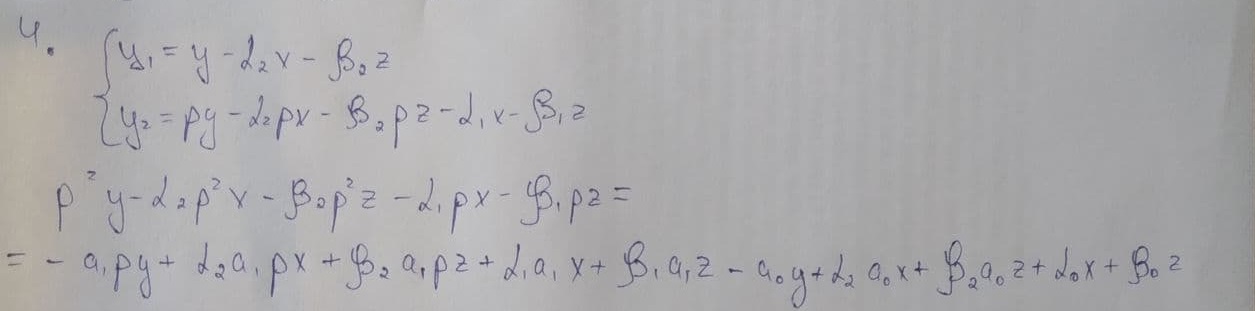 4.
y₁ = y - α₂x - β₂z
y₂ = py - α₂px - β₂pz - α₁x - β₁z
p²y - α₂p²x - β₂p²z - α₁px - β₁pz =
= - a₁py + α₂a₁px + β₂a₁pz + α₁a₁x + β₁a₁z - a₀y + α₂a₀x + β₂a₀z + α₀x + β₀z